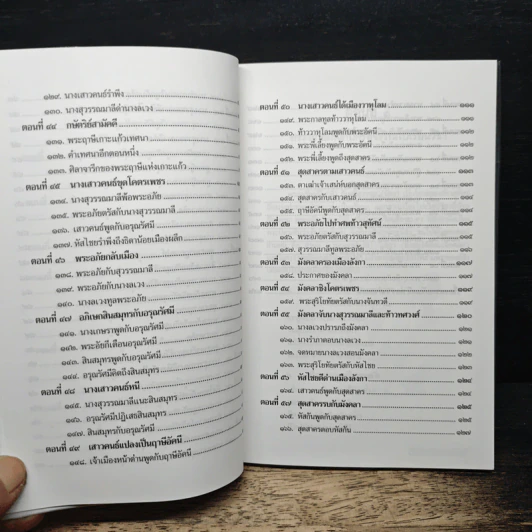 ๑๒๙. นางเสาวคนธ์รำพึง
๑๓๐. นางสุวรรณมาลีด่านางลเวง
ตอนที่ ๔๔ กษัตริย์สามัคคี
๑๓๑. พระฤาษีเกาะแก้วเทศนา
๑๓๒. คำเทศนาอีกตอนหนึ่ง
๑๓๓. ศิลาจารึกของพระฤาษีแห่งเกาะแก้ว
ตอนที่ ๔๕ นางเสาวคนธ์ขุดโคตรเพชร
๑๓๔. นางสุวรรณมาลีพ้อพระอภัย
๑๓๕. พระอภัยตรัสกับนางสุวรรณมาลี
๑๓๖. เสาวคนธ์พูดกับอรุณรัศมี
๑๓๗. หัสไชยรำพึงถึงธิดาน้อยเมืองผลึก
ตอนที่ ๔๖ พระอภัยกลับเมือง
๑๓๘. พระอภัยกับสุวรรณมาลี
๑๓๙. พระอภัยกับนางลเวง
๑๔๐. นางลเวงทูลพระอภัย
ตอนที่ ๔๗ อภิเษกสินสมุทรกับอรุณรัศมี
๑๔๑. นางเกษราพูดกับอรุณรัศมี
๑๔๒. พระอัยกีเตือนอรุณรัศมี
๑๔๓. สินสมุทรพูดกับอรุณรัศมี
๑๔๔. อรุณรัศมีคิดถึงสินสมุทร
ตอนที่ ๔๘ นางเสาวคนธ์หนี
๑๔๕. นางสุวรรณมาลีแนะสินสมุทร
๑๔๖. อรุณรัศมีปฏิเสธสินสมุทร
๑๔๗. สินสมุทรกับอรุณรัศมี
ตอนที่ ๔๙ เสาวคนธ์แปลงเป็นฤาษีอัคนี
๑๔๘. เจ้าเมืองหน้าด่านพูดกับฤาษีอัคนี
ตอนที่ ๕๐ นางเสาวคนธ์ได้เมืองวาหุโลม ๑๑๑
๑๔๙. พระกาลทูลท้าววาหุโลม ๑๑๑
๑๕๐. ท้าววาหุโลมพูดกับพระอัคนี ๑๑๑
๑๕๑. พระพี่เลี้ยงพูดกับพระอัคนี ๑๑๒
๑๕๒. พระพี่เลี้ยงพูดถึงสุดสาคร ๑๑๒
ตอนที่ ๕๑ สุดสาครตามเสาวคนธ์ ๑๑๓
๑๕๓. ตาเฒ่าเจ้าเสน่ห์บอกสุดสาคร ๑๑๓
๑๕๔. สุดสาครกับเสาวคนธ์ ๑๑๔
๑๕๕. ฤาษีอัคนีพูดกับสุดสาคร ๑๑๔
ตอนที่ ๕๒ พระอภัยไปทำศพท้าวสุทัศน์ ๑๑๕
๑๕๖. พระอภัยตรัสกับสุวรรณมาลี ๑๑๕
๑๕๗. สุวรรณมาลีทูลพระอภัย ๑๑๖
ตอนที่ ๕๓ มังคลาครองเมืองลังกา ๑๑๗
๑๕๘. ประกาศของมังคลา ๑๑๗
ตอนที่ ๕๔ มังคลาชิงโคตรเพชร ๑๑๙
๑๕๙. พระสุริโยทัยตรัสกับนางจันทวดี ๑๑๙
ตอนที่ ๕๕ มังคลาจับนางสุวรรณมาลีและท้าวทศวงศ์ ๑๒๐
๑๖๐. นางลเวงปรารภถึงมังคลา ๑๒๐
๑๖๑. นางรำภาตอบนางลเวง ๑๒๑
๑๖๒. จดหมายนางลเวงสอนมังคลา ๑๒๑
๑๖๓. พระสุริโยทัยตรัสกับหัสไชย ๑๒๒
ตอนที่ ๕๖ หัสไชยตีด่านเมืองลังกา ๑๒๔
๑๖๔. เสาวคนธ์พูดกับสุดสาคร ๑๒๔
ตอนที่ ๕๗ สุดสาครรบกับมังคลา ๑๒๕
๑๖๕. หัสกันพูดกับสุดสาคร ๑๒๕
๑๖๖. สุดสาครตอบหัสกัน ๑๒๗